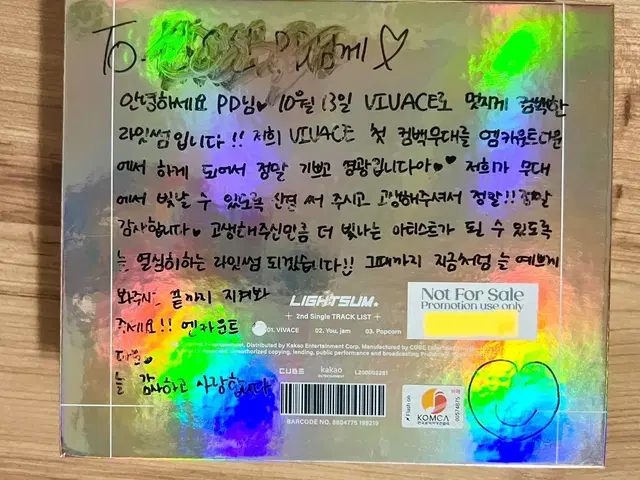 To. 께♡
안녕하세요 PD님♥ 10월 13일 VIVACE로 멋지게 컴백한
라잇썸입니다!! 저희 VIVACE 첫 컴백무대를 엠카운트다운
에서 하게 되어서 정말 기쁘고 영광입니다아♥♥ 저희가 무대
에서 빛날 수 있도록 신경 써 주시고 고생해주셔서 정말!! 정말
감사합니다♥ 고생해주신만큼 더 빛나는 아티스트가 될 수 있도록
늘 열심히하는 라잇썸 되겠습니다!! 그때까지 지금처럼 늘 예쁘게
봐주시 끝까지 지켜봐
주세요!! 엔카운트
다운♥
늘 감사하고 사랑합니다
LIGHTSUM.
2nd Single TRACK LIST
01. VIVACE 02. You, jam 03. Popcorn
Entertainment, Distributed by Kakao Entertainment Corp. Manufactured by CUBE
reserved, unauthorized copying, lending, public performance and broadcasting
CUBE kakao entertainment L200002281
BARCODE NO. 8804775 199219
Not For Sale
Promotion use only
KOMCA